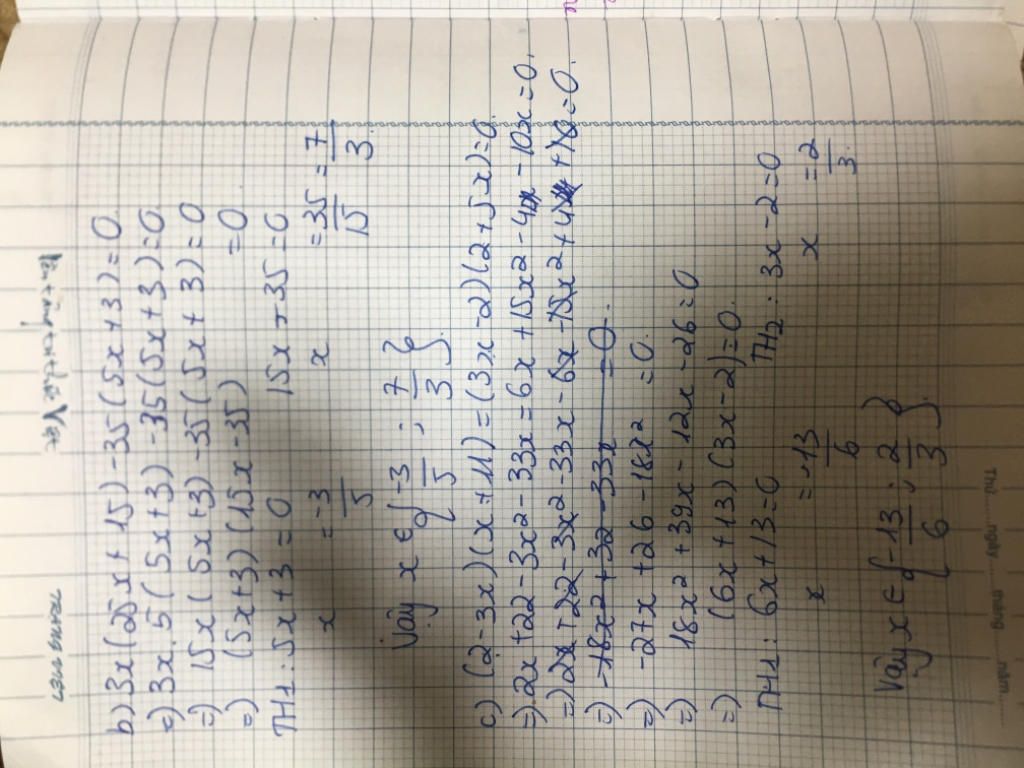 b) 3x(25x+15)-35(5x+3)=0.
=) 3x.5(5x+3)-35(5x+3)=0.
=) 15x(5x+3)-35(5x+3)=0
=) (5x+3)(15x-35) =0
TH1: 5x+3=0 15x-35=0
x = -3/5 x = 35/15 = 7/3.
Vậy x ∈ {-3/5 ; 7/3}
c) (2-3x)(x+11)=(3x-2)(2+5x)=0.
=) 2x+22-3x2-33x=6x+15x2-4-10x=0.
=) 2x+22-3x2-33x-6x-15x2+4+10=0.
=) -18x2+32-33x =0.
=) -27x+26-18x² =0.
=) 18x²+39x-12x-26=0
=) (6x+13)(3x-2)=0.
TH1: 6x+13=0 TH2: 3x-2=0
x = -13/6 x = 2/3.
Vậy x ∈ {-13/6 ; 2/3}
Thứ ngày tháng năm